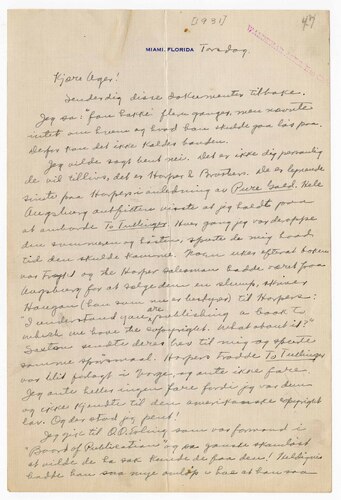 [1931]
47
MIAMI, FLORIDA Torsdag.
Kjære Ager!
Sender dig disse dokumenter tilbake.
Jeg sa: "fan takke" flere ganger, men nævnte
intet om hvem og hvad han skulde gaa løs paa.
Derfor kan det ikke kaldes banden.
Jeg vilde sagt bent nei. Det er ikke dig personlig
de vil tillivs, det er Harper & Brothers. De er
sinte paa Harpers i anledning av Pure Gold. Hele
Augsburg outfitten visste at jeg holdt paa
at omarbeide To Tullinger. Hver gang jeg var deroppe
den sommeren og høsten, spurte de mig hvad
tid den skulde komme. Noen uker efterat boken
var and the Harper salesman hadde været paa
Augsburg for at sælge dem en slump, skrev
Haugan (han som nu er bestyrer) til Harpers:
"I understand you are publishing a book to
which we have the copyright. What about it?"
Saxton sendte deres brev til mig og spurte
samme spørsmaal. Harpers trodde To Tullinger
var blit utlagt i Norge, og ante ikke fare.
Jeg ante heller ingen fare fordi jeg var dum
og ikke kjendte til den amerikanske copyright
lov. Og der stod jeg pent!
Jeg gik til som var formand i
"Board of Publication" og sa ganske
at vilde de ha sak kunde de faa den! Heldigvis
hadde han saa mye omløp i